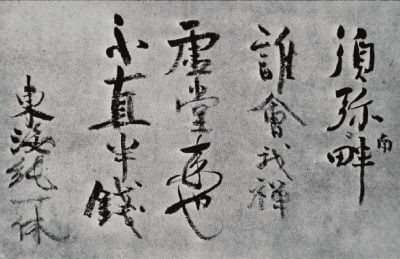 須弥南畔
誰會我禅
虚堂來也
不直半錢
東海純一休